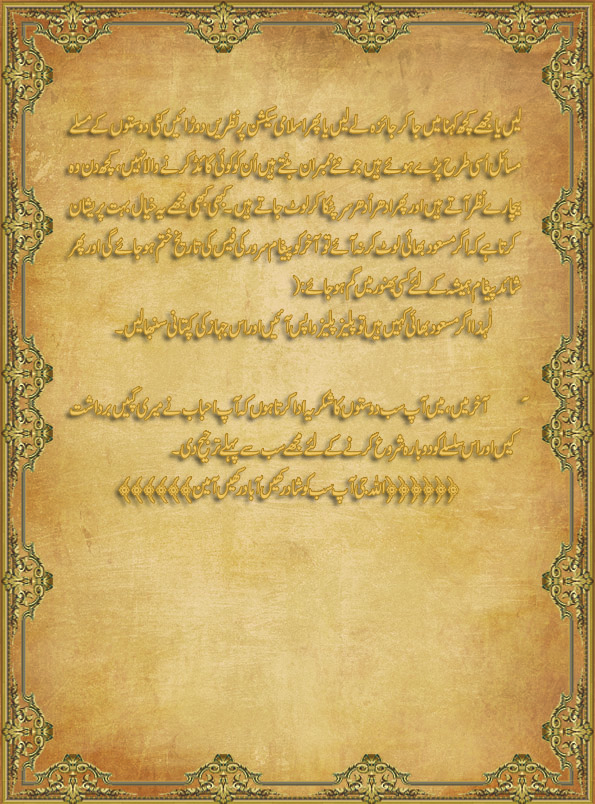 لیں یا مجھے کچھ کہنا میں جا کر جائزہ لے لیں یا پھر اسلامی سیکشن پر نظریں دوڑائیں کئی دوستوں کے مسلے
مسائل اسی طرح پڑے ہوئے ہیں جو نئے ممبران بنتے ہیں اُن کو کوئی گائیڈ کرنے والا نہیں، کچھ دن وہ
بیچارے نظر آتے ہیں اور پھر ادھر اُدھر سر پٹکا کر لوٹ جاتے ہیں۔ کبھی کبھی مجھے یہ خیال بہت پریشان
کرتا ہے کہ اگر مسعود بھائی لوٹ کر نہ آئے تو آخر کو پیغام سرور کی فیس کی تاریخ ختم ہو جائے گی اور پھر
شائد پیغام ہمیشہ کے لئے کسی بھنور میں گم ہو جائے :(
لہٰذا اگر مسعود بھائی کہیں ہیں تو پلیز پلیز واپس آئیں اور اس جہاز کی کپتانی سنبھالیں۔
آخر میں، میں آپ سب دوستوں کا شکریہ ادا کرتا ہوں کہ آپ احباب نے میری گپیں برداشت
کیں اور اس سلسلے کو دوبارہ شروع کرنے کے لئے مجھے سب سے پہلے ترجیح دی۔
اللہ جی آپ سب کو شاد رکھیں آباد رکھیں آمین